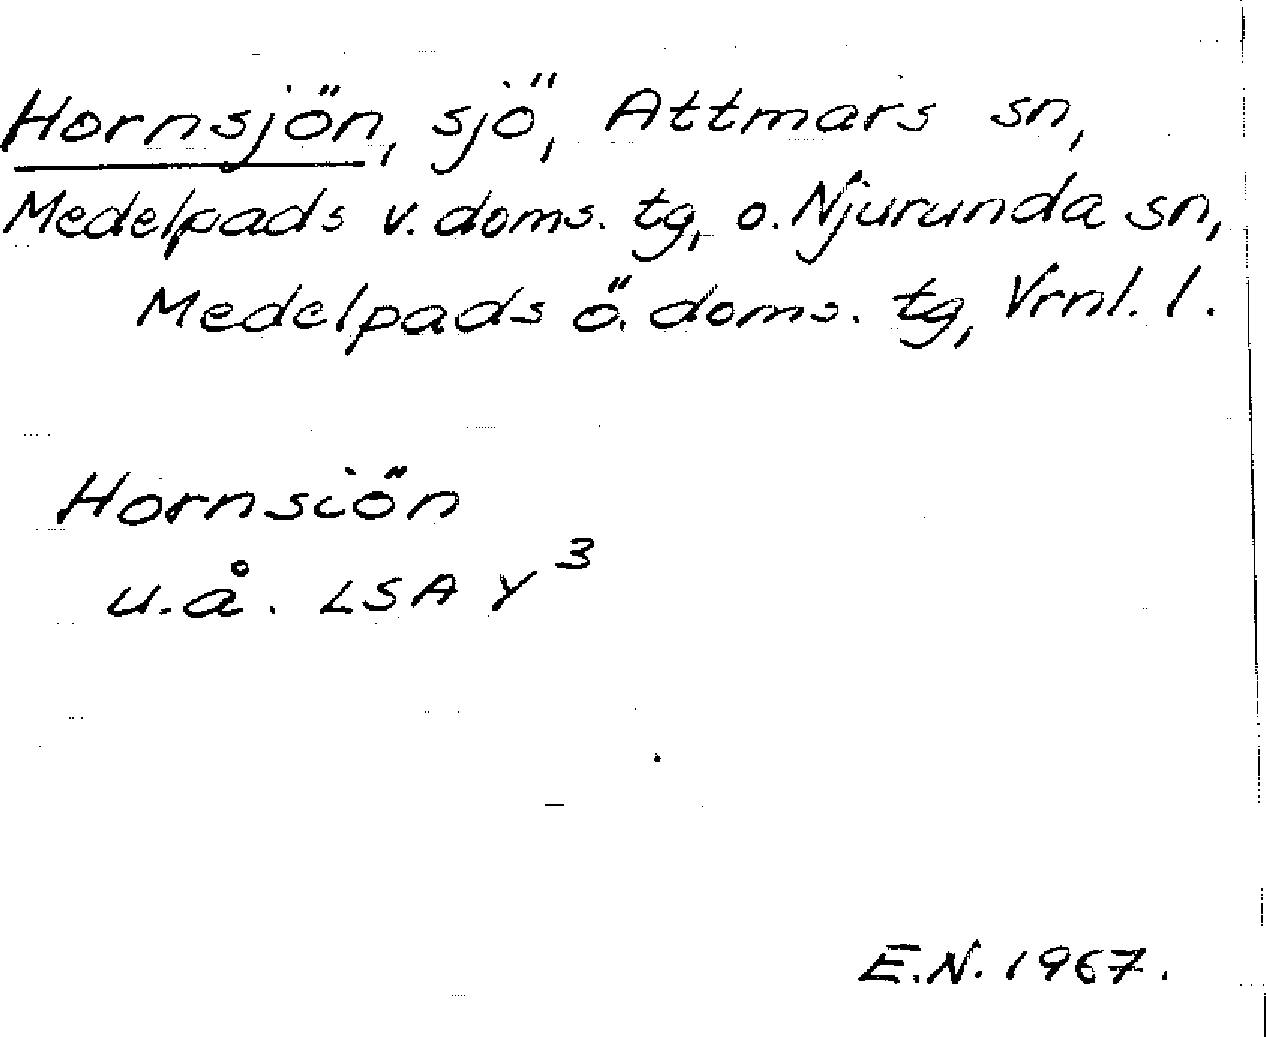 Hornsjön, sjö, Attmars sn,
Medelpads v. doms. tg, o. Njurunda sn,
Medelpads ö. doms. tg, Vrnl. l.
Hornsiön
u.å. LSA Y³
E.N. 1967.